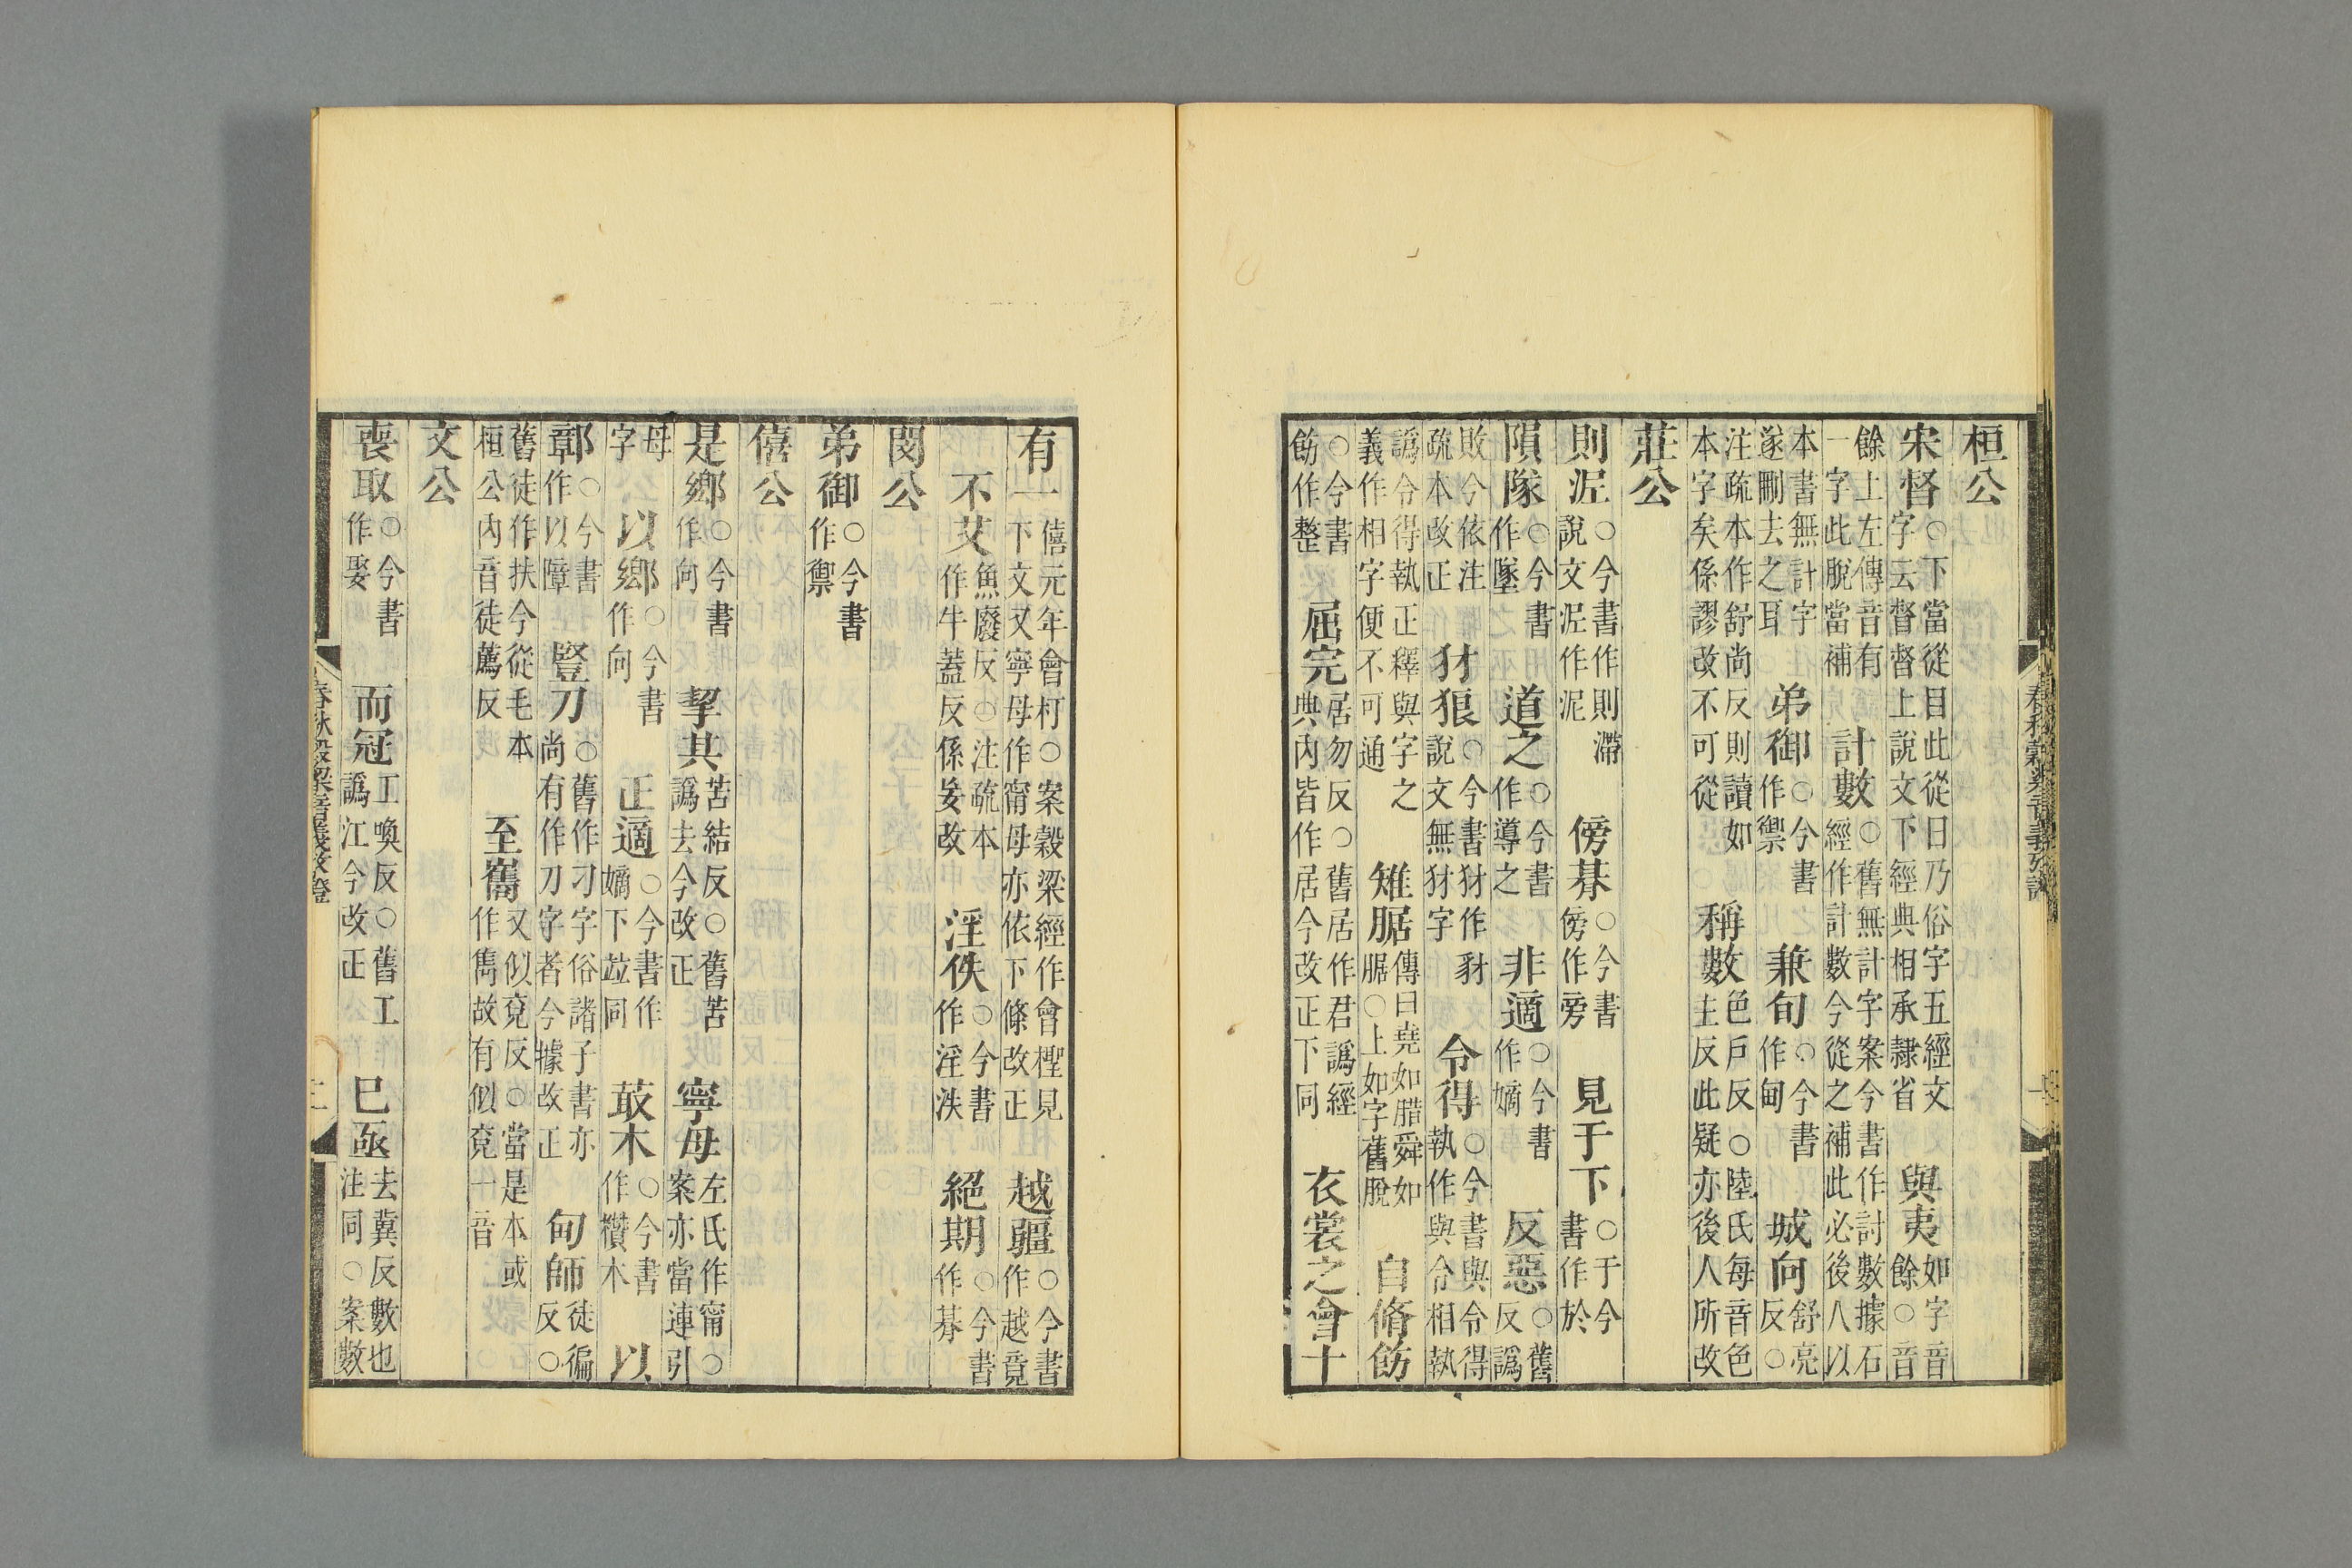 桓公
宋督○下當從目此從日乃俗字五經文字云督督上說文下經典相承隸省與夷如字音餘○音
餘上左傳音有一字此脫當補計數○舊無計字案今書作討數據石經作計數今從之補此必後人以
本書無計字遂刪去之耳弟御○今書作禦兼甸○今書作甸城向舒亮反○
注疏本作舒尚反則讀如本字矣係謬改不可從稱數色戶反○陸氏每音色主反此疑亦後人所改
莊公
則泥○今書作則滯說文泥作泥傍朞○今書傍作旁見于下○于今書作於
隕隊○今書作墜道之○今書作導之非適○今書作嫡反惡○舊反譌
敗今依注疏本改正犲狼○今書犲作豺說文無犲字令得○今書與令得執作與令相執
譌令得執正釋與字之義作相字便不可通雉腒傳曰堯如腊舜如腒○上如字舊脫自脩飭
○今書飭作整屈完居勿反○舊居作君譌經典內皆作居今改正下同衣裳之會十
有一僖元年會柯○案穀梁經作會檉見下文又寧母作甯母亦依下條改正越疆○今書作越竟
不艾魚廢反○注疏本作牛蓋反係妄改淫佚○今書作淫泆絕期○今書作朞
閔公
弟御○今書作禦
僖公
是鄉○今書作向挈其苦結反○舊苦譌去今改正寧母左氏作甯○案亦當連引
母字以鄉○今書作向正適○今書作嫡下竝同菆木○今書作欑木以
鄣○今書作以障豎刀○舊作刁字俗諸子書亦尚有作刀字者今據改正甸師徒徧反○
舊徒作扶今從毛本桓公內音徒薦反至巂又似兗反○當是本或作雋故有似兗一音
文公
喪取○今書作娶而冠工喚反○舊工譌江今改正已亟去冀反數也注同○案數
春秋穀梁音義攷證